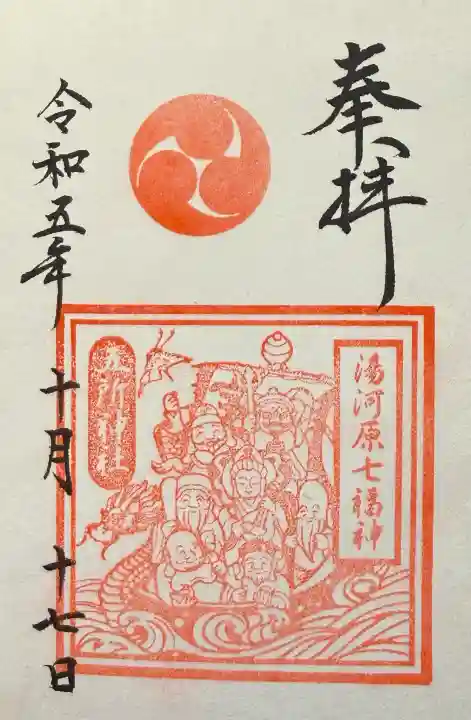 奉拝
湯河原七福神
五所神社
令和五年 十月 十七日